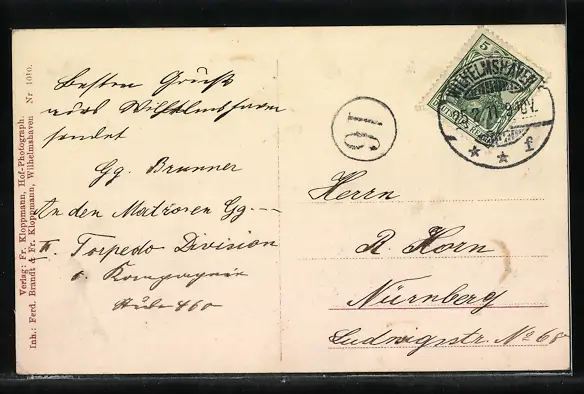 Besten Gruß
aus Wilhelmshaven
sendet
Gg. Brunner
An den Matrosen Gg. —
II. Torpedo Division
Kompagnie
Stube 460
Herrn
R. Horn
Nürnberg
Ludwigstr. No 68
16
5
WILHELMSHAVEN
* * f
Verlag: Fr. Kloppmann, Hof-Photograph.
Inh.: Ferd. Brandt & Fr. Kloppmann, Wilhelmshaven Nr. 1010.